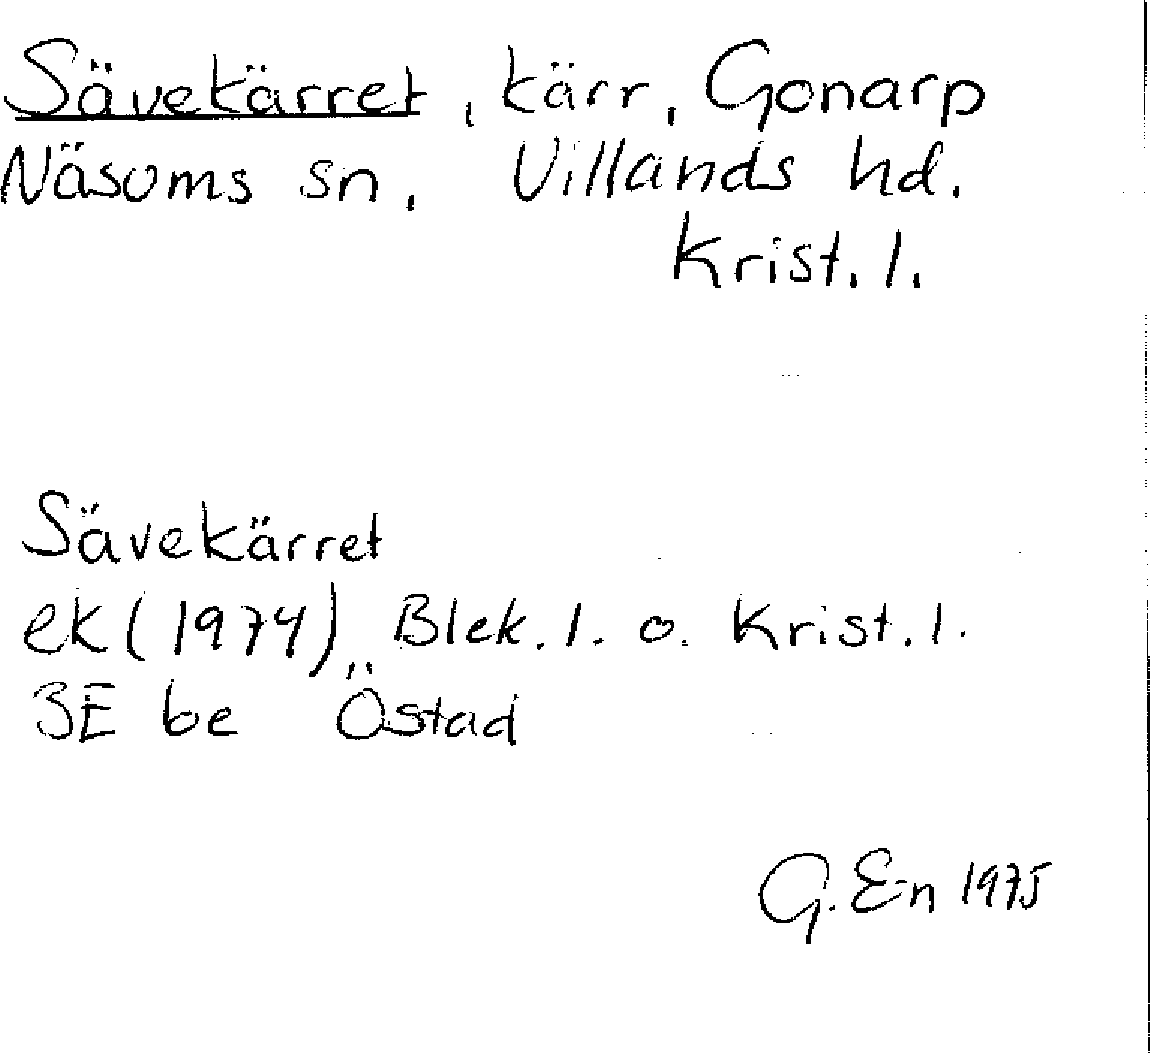 Sävekärret, kärr, Gonarp
Näsums sn. Villands hd.
Krist. l.
Sävekärret
ek (1974) Blek. l. o. Krist. l.
3E be Östad
G. E-n 1975